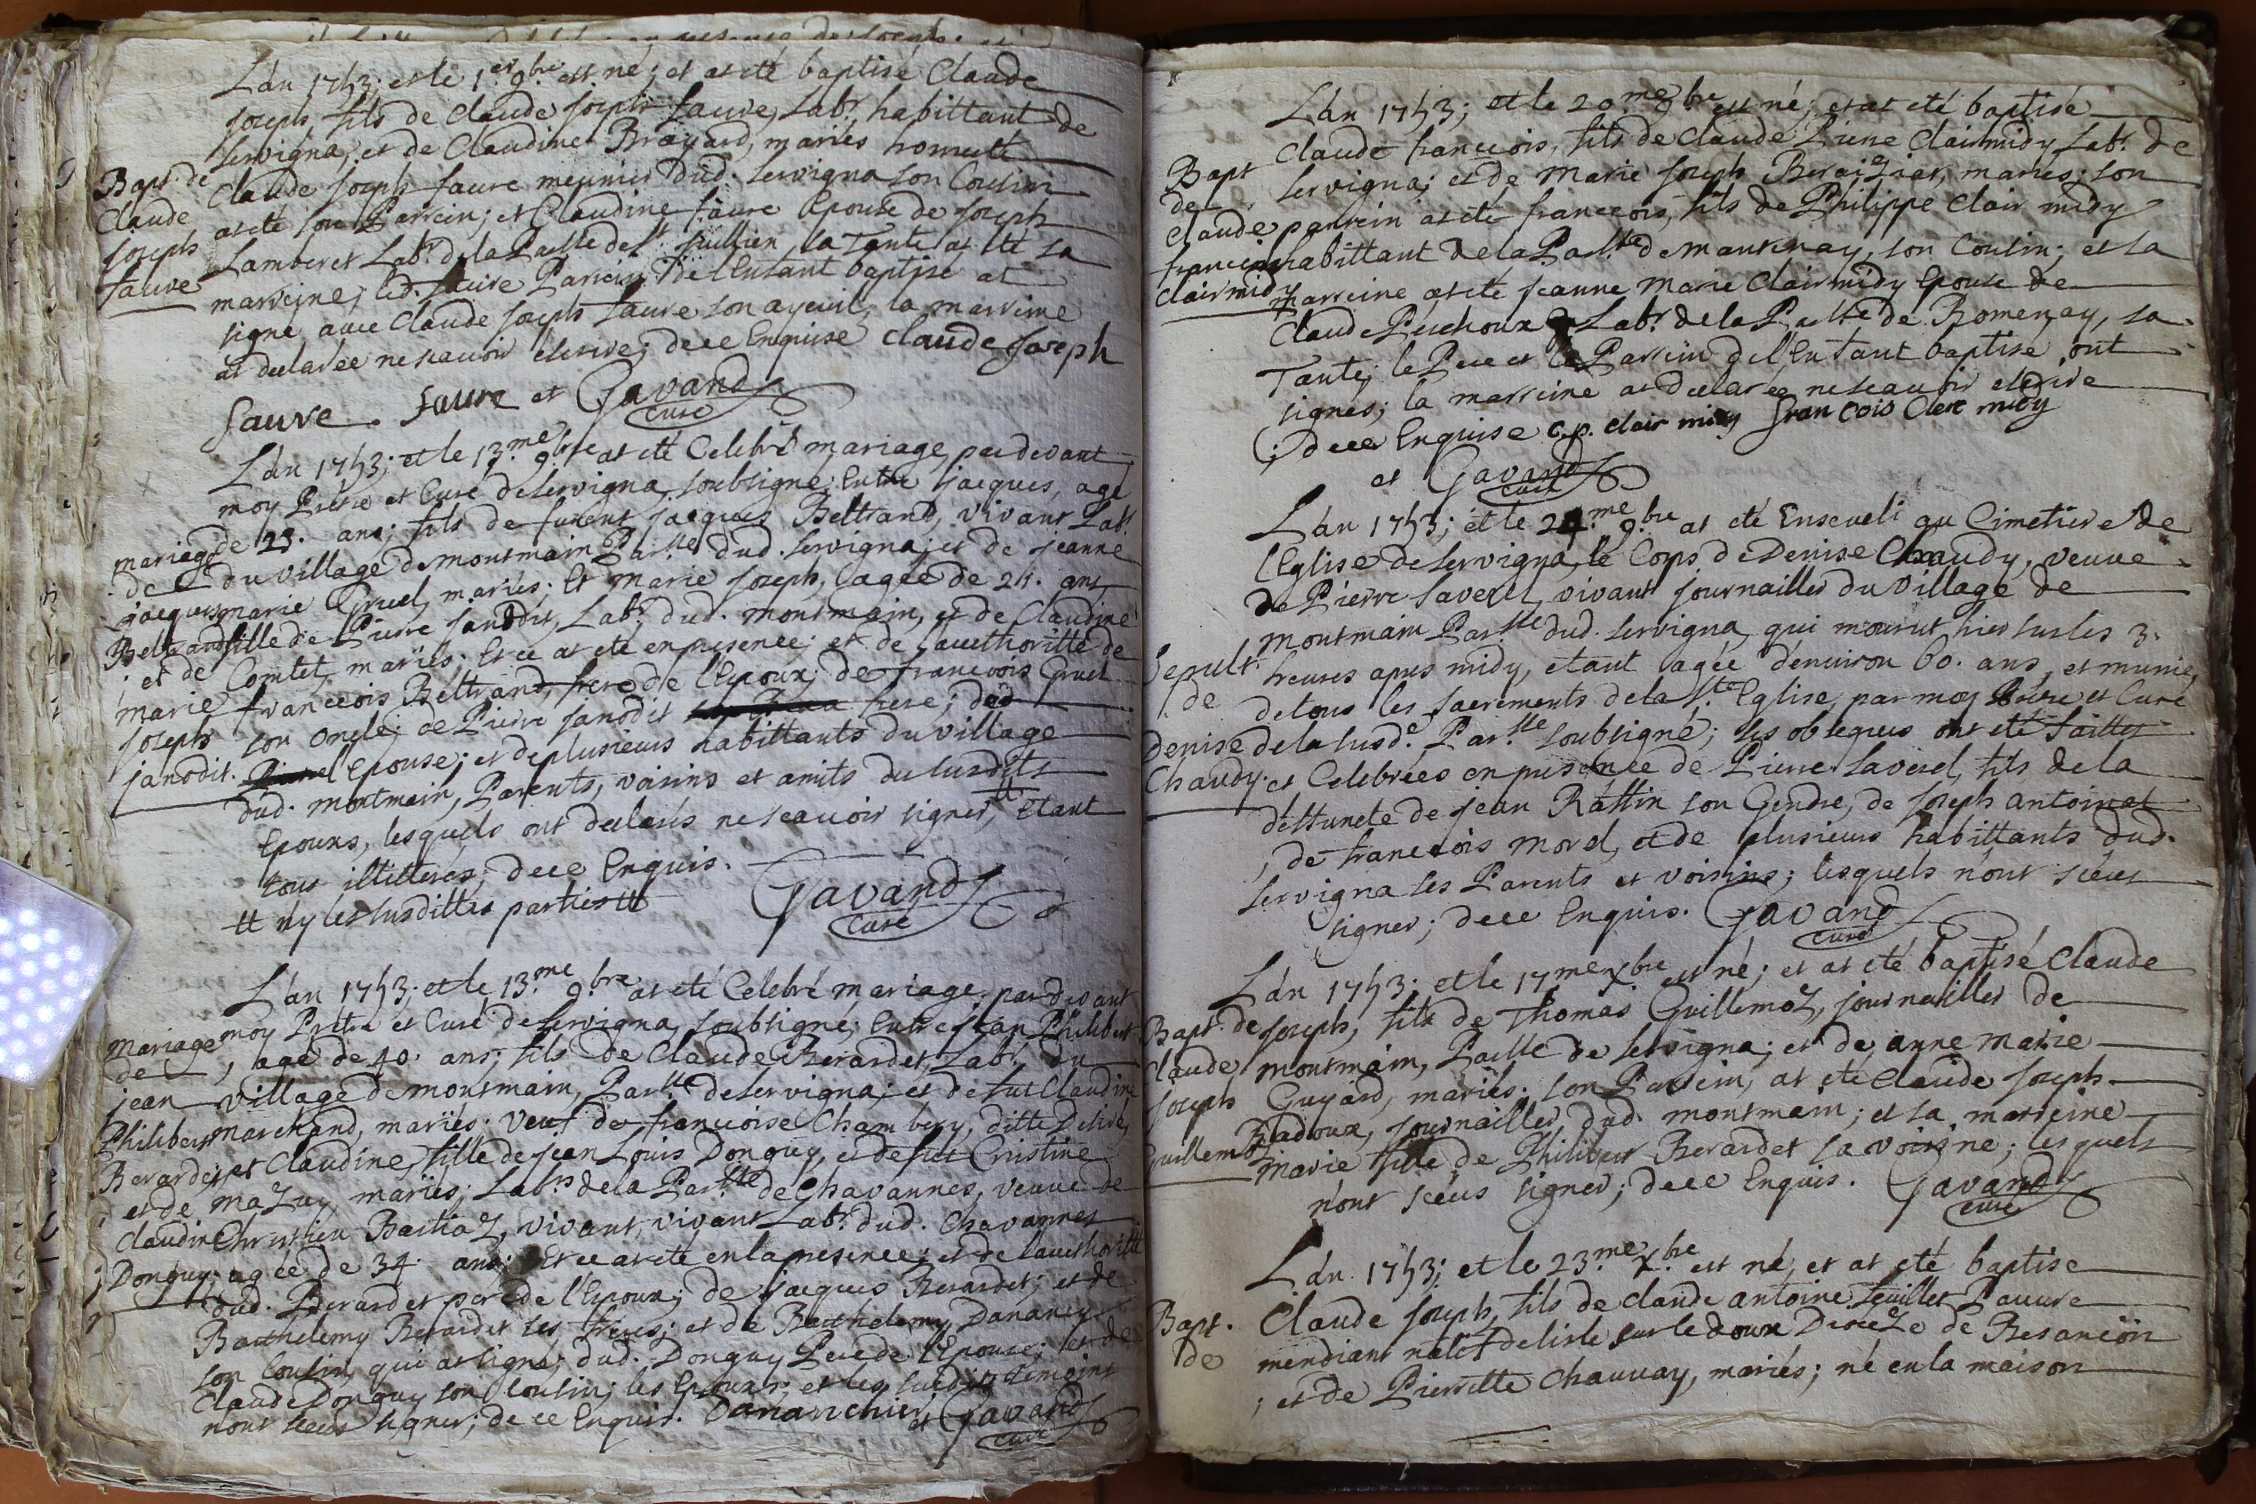 Lán 1753; et le 1.er 9.bre est né; et at eté baptisé Claude
Joseph, fils de Claude Joseph Fauve, Lab.r habittant de
Servigna, et de Claudine Brayard, mariés
Bapt. de
Claude
Joseph
fauve
Claude Joseph fauve meunier dud. Servigna son Cousin
at eté son Parrein; et Claudine fauve Epouse de Joseph
Lamberet Lab.r de la Par.sse de S.t Jullien, la Tante at eté sa
marreine; led. fauve Parrein de l'Enfant baptisé at
signé, avec Claude Joseph fauve son ayeuil, la marreine
at declarée ne scavoir escrire; de ce Enquise Claude Joseph
fauve. fauve et Gavand
curé
Lán 1753; et le 13.me 9.bre at eté Celebré mariage par devant
moy Prêtre et Curé de Servigna, soubsigné; Entre Jacques, agé
mariage
de
jacques
Beltrand
; et de
marie
joseph
janodit.
de 25. ans; fils de Jacques Beltrand, vivant Lab.r
du village de montmain Par.sse dud. Servigna; et de jeanne
marie Gruel, mariés; Et marie joseph, agée de 25. ans,
fille de Pierre Janodit, Lab.r dud. montmain, et de Claudine
Comtet, mariés; Et ce at eté en presence; et de l'aucthoritté de
franceois Beltrand, frere de l'Epoux; de franceois Gruel
son oncle; de Pierre Janodit frere; de lad.
Epouse; et de plusieurs habittants du village
dud. montmain, Parents, voisins et amits du susdits
Epoux, lesquels ont declarés ne scavoir signer, # Etant
tous illitterés; de ce Enquis.
# ny les susdittes parties # Gavand
curé
Lán 1753; et le 13.me 9.bre at eté Celebré mariage par devant
mariage
de
jean
Philibert
Berardet
; et de
Claudine
Donguy
moy Prêtre et Curé de Servigna, soubsigné; Entre Jean Philibert
, agé de 40. ans; fils de Claude Berardet, Lab.r du
village de montmain, Par.sse de Servigna; et de fut Claudine
marchand, mariés; veuf de françoise Chambery, ditte Delire,
et Claudine, fille de jean Louis Donguy, et de fut Cristine
Mazuy, mariés; Lab.rs de la Par.sse de Chavannes, veuve de
Christien Bastiaz, vivant, vivant Lab.r dud. Chavannes
agée de 34. ans; Et ce at eté en la presence; et de l'aucthoritté
dud. Berardet pere de l'Epoux; de Jacques Berardet; et de
Barthelemy Berardet ses freres; et de Barthelemy Dananchier
son Cousin, qui at signé; dud. Donguy Pere de l'Epouse; et de
Claude Donguy son Cousin; les Epoux; et les susdits témoins
n'ont sceus signer; de ce Enquis. Dananchier et Gavand
curé
Lán 1753; et le 20.me 9.bre est né; et at eté baptisé
Bapt
de
Claude
franceois
Clairmidy
Claude franceois, fils de Claude Pierre Clairmidy Lab.r de
Servigna; et de Marie Joseph Beraizias, mariés; son
parrein at eté franceois, fils de Philippe Clair midy
habittant de la Par.sse de mantenay, son Cousin; et la
marreine at eté Jeanne Marie Clairmidy Epouse de
Claude Perchoux Lab.r de la Par.sse de Romenay, sa
Tante; le Pere et le Parrein de l'Enfant baptisé ont
signés; la marreine at declarée ne scavoir escrire
; de ce Enquise c.p. clair midy fran cois Clere midy
et Gavand
curé
Lán 1753; et le 24.me 9.bre at eté Enseveli au Cimetiere de
l'Eglise de Servigna, le Corps de Denise Chaudy, veuve
de Pierre Saverel, vivant journailler du village de
montmain Par.sse dud. Servigna, qui mourut hier sur les 3.
Sepult.
de
Denise
Chaudy.
heures apres midy, etant agée d'environ 60. ans, et munie,
de tous les sacrements de la S.te Eglise, par moy Prêtre et Curé
de la susd.e Par.sse soubsigné; ses obseques ont eté faittes
et Celebrées en presence de Pierre Saverel, fils de la
deffuncte de jean Raffin son Gendre, de Joseph antoinat
, de franceois morel, et de plusieurs habittants dud.
Servigna ses Parents et voisins; lesquels n'ont scéus
signer; de ce Enquis. Gavand
curé
Lán 1753; et le 17.me X.bre est né; et at eté baptisé Claude
Bapt. de
Claude
Joseph
Guillemoz
Joseph, fils de Thomas Guillemoz, journailler de
montmain, Par.sse de Servigna; et de anne Marie
Guyard, mariés; son Parrein, at eté Claude Joseph
Badoux, Journailler, dud. montmain; et sa marreine
Marie fille de Philibert Berardet sa voisine; lesquels
n'ont scéus signer; de ce Enquis. Gavand
curé
Lán 1753; et le 23.me X.bre est né, et at eté baptisé
Bapt.
de
Claude Joseph, fils de Claude antoine feuillet Pauvre
mendiant natif de lisle sur le doux Diocéze de Besançon
; et de Pierrette Chauvay, mariés; né en la maison